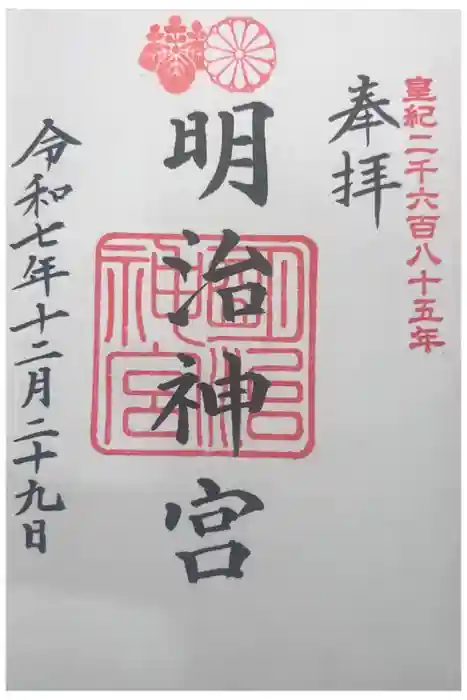 皇紀二千六百八十五年
奉拝
明治神宮
明治神宮
令和七年十二月二十九日